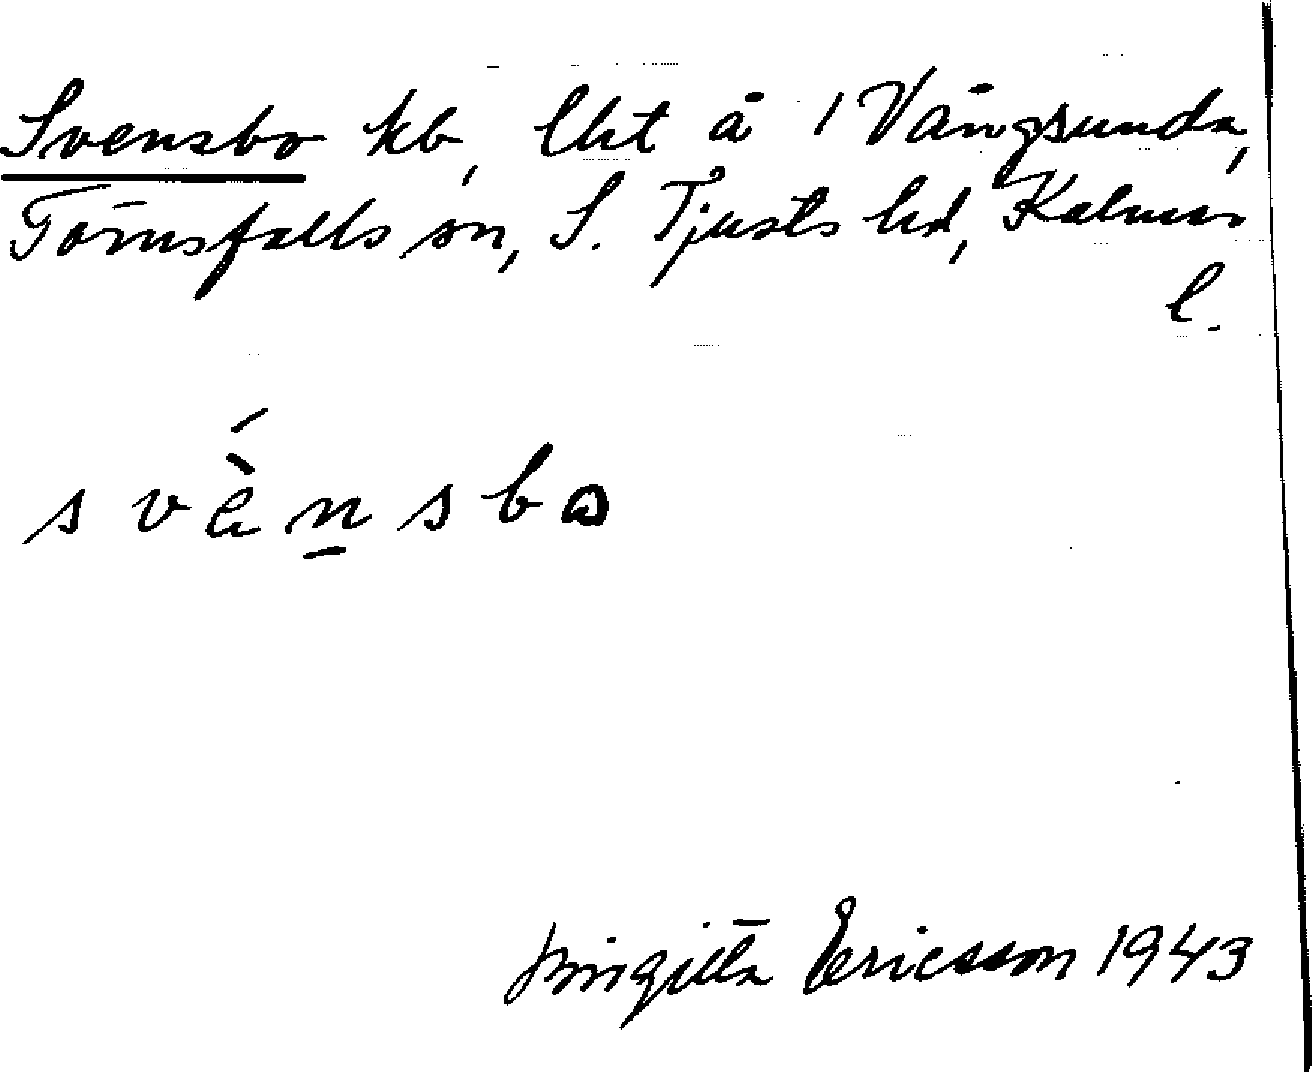 Svensbo kb, lht å 1 Vångsunda,
Törnsfalls sn, S. Tjusts hd, Kalmar
l.
svä̀́n̠sbo
Birgitta Ericsson 1943